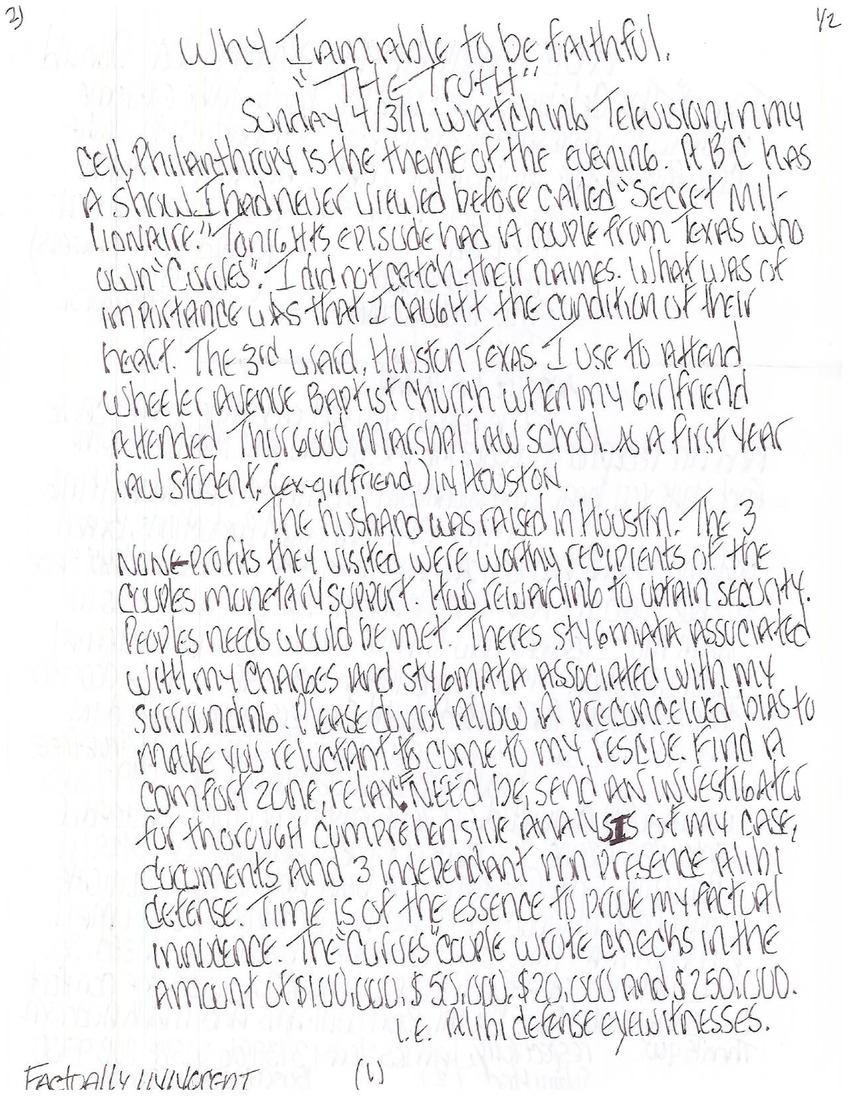 2) 1/2
Why I am able to be faithful.
"THE TRUTH"
Sunday 4/3/11. Watching Television, in my
cell, Philanthropy is the theme of the evening. ABC has
a show I had never viewed before called "Secret Mil-
lionaire." Tonights episode had a couple from Texas who
own "Curves". I did not catch their names. What was of
importance was that I caught the condition of their
heart. The 3rd ward, Houston Texas. I use to attend
Wheeler Avenue Baptist Church when my girlfriend
attended Thurgood Marshall law school. As a first year
law student, (ex-girlfriend) in Houston.
The husband was raised in Houston. The 3
none-profits they visited were worthy recipients of the
couples monetary support. How rewarding to obtain security.
Peoples needs would be met. Theres stygmata associated
with my charges and stygmata associated with my
surrounding. Please do not allow a preconceived bias to
make you reluctant to come to my rescue. Find a
comfort zone, relax. Need be, send an investigator
for thorough comprehensive analysis of my case,
documents and 3 independant non presence Alibi
defense. Time is of the essence to prove my factual
innocence. The "Curves" couple wrote checks in the
amount of $100,000. $50,000. $20,000 and $250,000.
i.e. Alibi defense eyewitnesses.
Factually innocent (1)